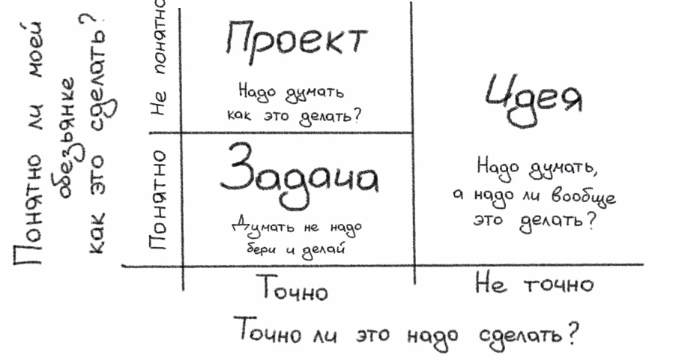 Понятно ли моей
обезьянке
как это сделать?
Не понятно
Понятно
Проект
Надо думать
как это делать?
Задача
Думать не надо
бери и делай
Идея
Надо думать,
а надо ли вообще
это делать?
Точно
Не точно
Точно ли это надо сделать?